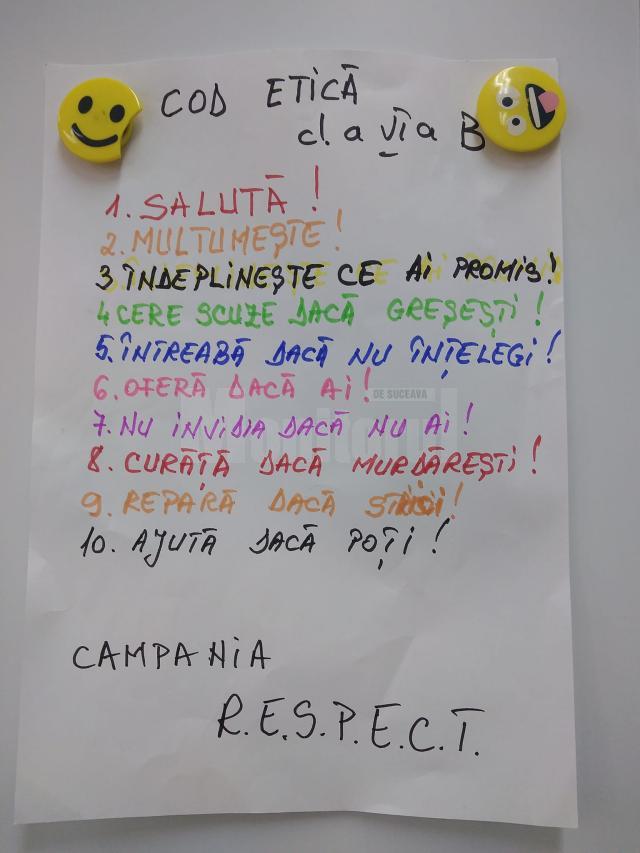 COD ETICĂ
cl. a VI a B
1. SALUTĂ !
2. MULTUMEȘTE !
3 ÎNDEPLINEȘTE CE Ai PROMIS!
4 CERE SCUZE DACĂ GREȘEȘTi !
5. ÎNTREABĂ DACĂ NU ÎNȚELEGi !
6. OFERĂ DACĂ Ai !
DE SUCEAVA
Monitorul
7. NU iNVIDiA DACĂ NU Ai !
8. CURĂȚĂ DACĂ MURDĂREȘTi !
9. REPARĂ DACĂ !
10. AJUTĂ DACĂ POȚi !
CAMPANiA
R.E.S.P.E.C.T.